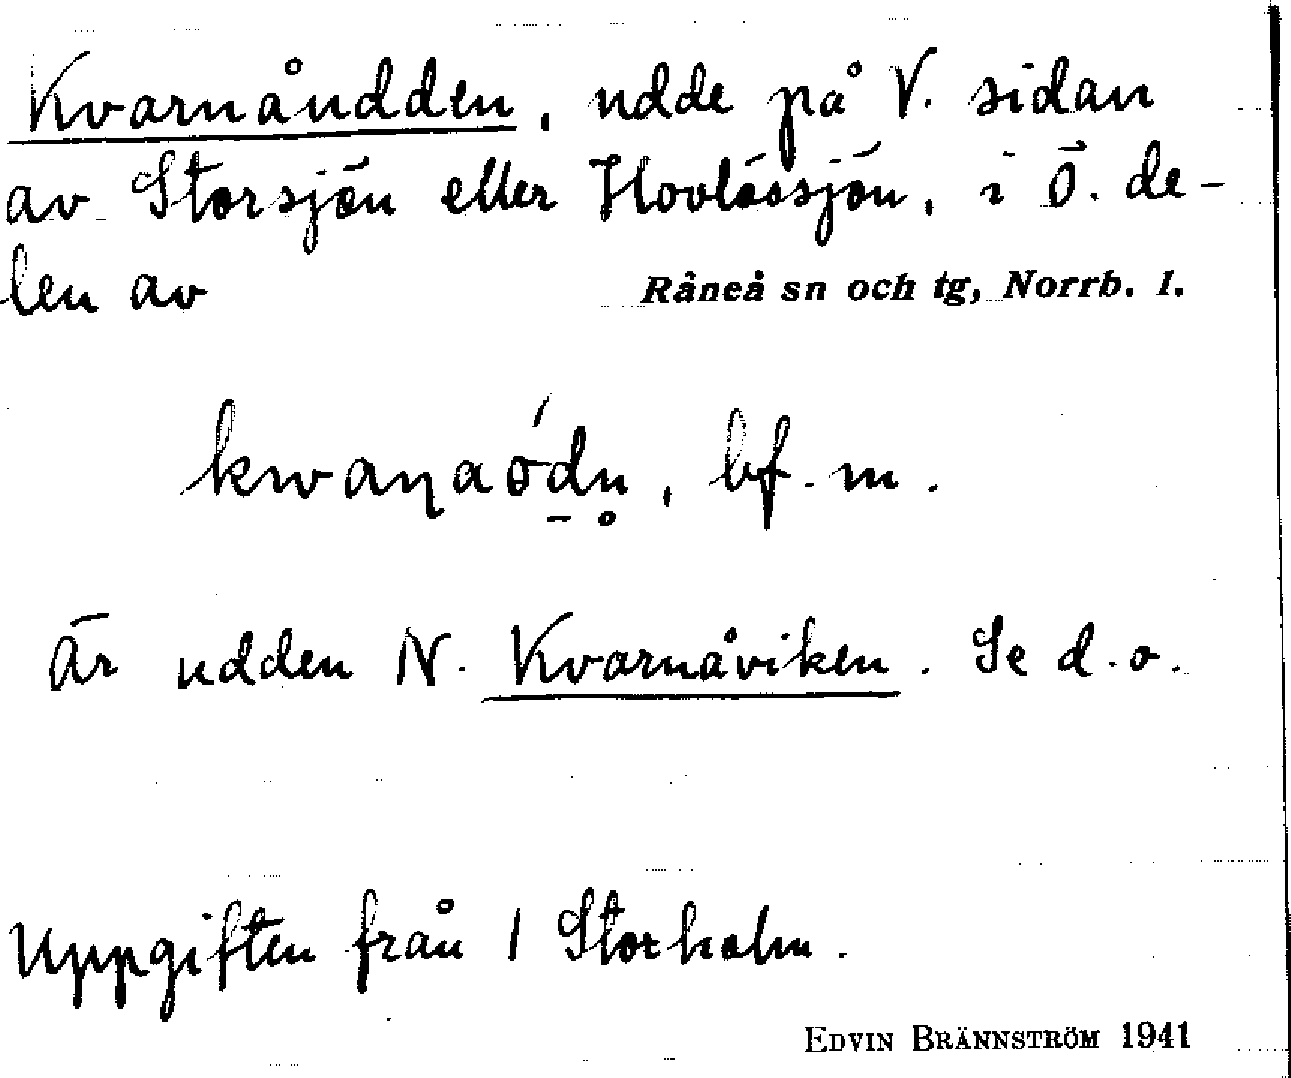 Kvarnåudden, udde på V. sidan
av Storsjön eller Hovlössjön, i Ö. de-
len av Råneå sn och tg, Norrb. l.
kwaṇaód̲n̥, bf. m.
Är udden N. Kvarnåviken. Se d.o.
Uppgiften från 1 Storholm.
EDVIN BRÄNNSTRÖM 1941